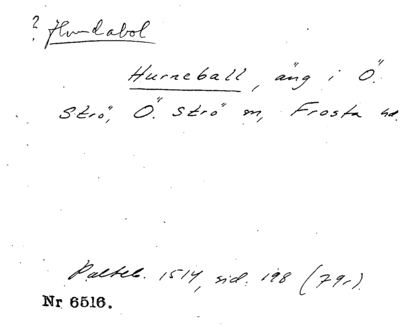 ? Hundabol
Hurneball, äng i Ö.
Strö, Ö. Strö sn, Frosta hd.
Palteb. 1514, sid. 198 (79r)
Nr 6516.